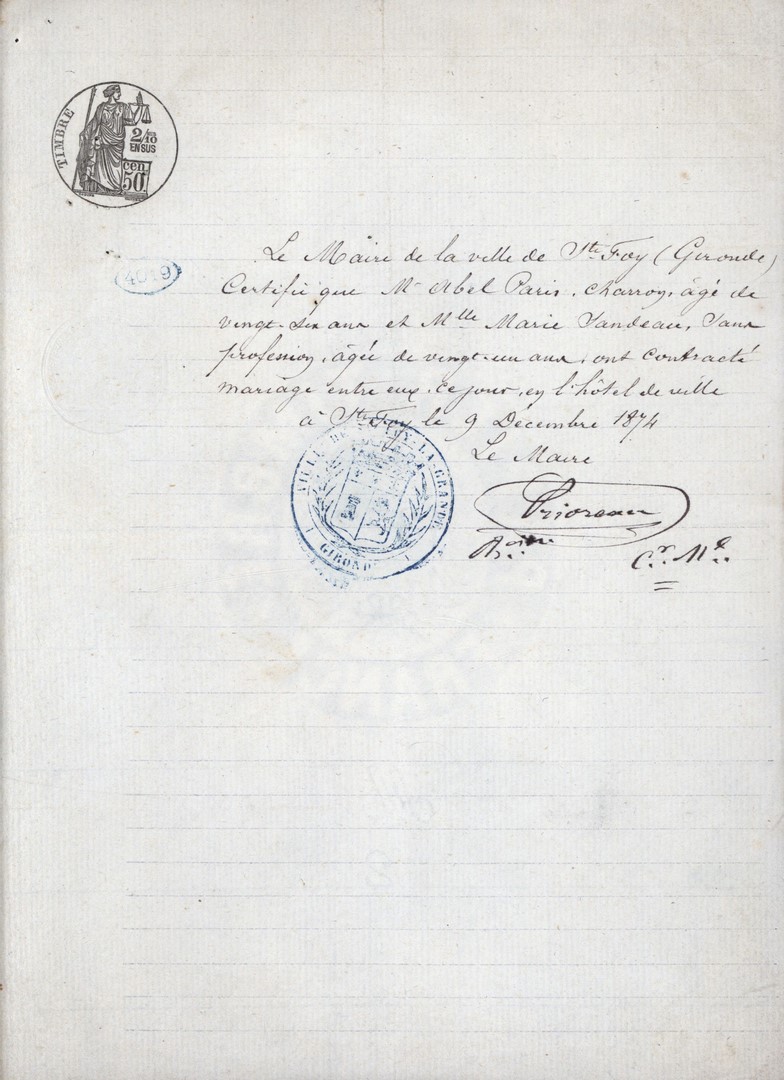 TIMBRE
2/10
EN SUS
cen.
50.
4019
Le Maire de la ville de Ste Foy (Gironde)
Certifie que Mr Abel Paris, charron, âgé de
vingt-six ans et Mlle Marie Jandeau, sans
profession, âgée de vingt-un ans, ont contracté
mariage entre eux, ce jour, en l'hôtel de ville
à Ste Foy, le 9 Décembre 1874
Le Maire
VILLE DE STE FOY-LA-GRANDE
GIRONDE
Cer. Mal